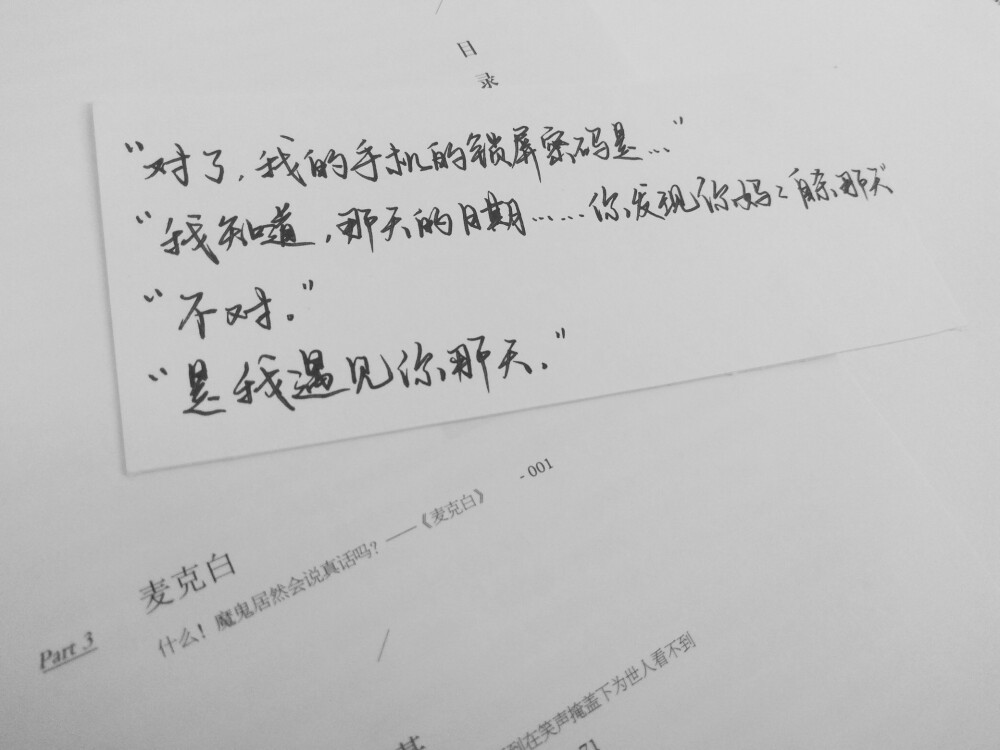 目
录
“对了，我的手机的锁屏密码是…”
“我知道，那天的日期……你发现你妈妈自杀那天”
“不对。”
“是我遇见你那天.”
- 001
麦克白
Part 3
什么！魔鬼居然会说真话吗？——《麦克白》
到在笑声掩盖下为世人看不到
71